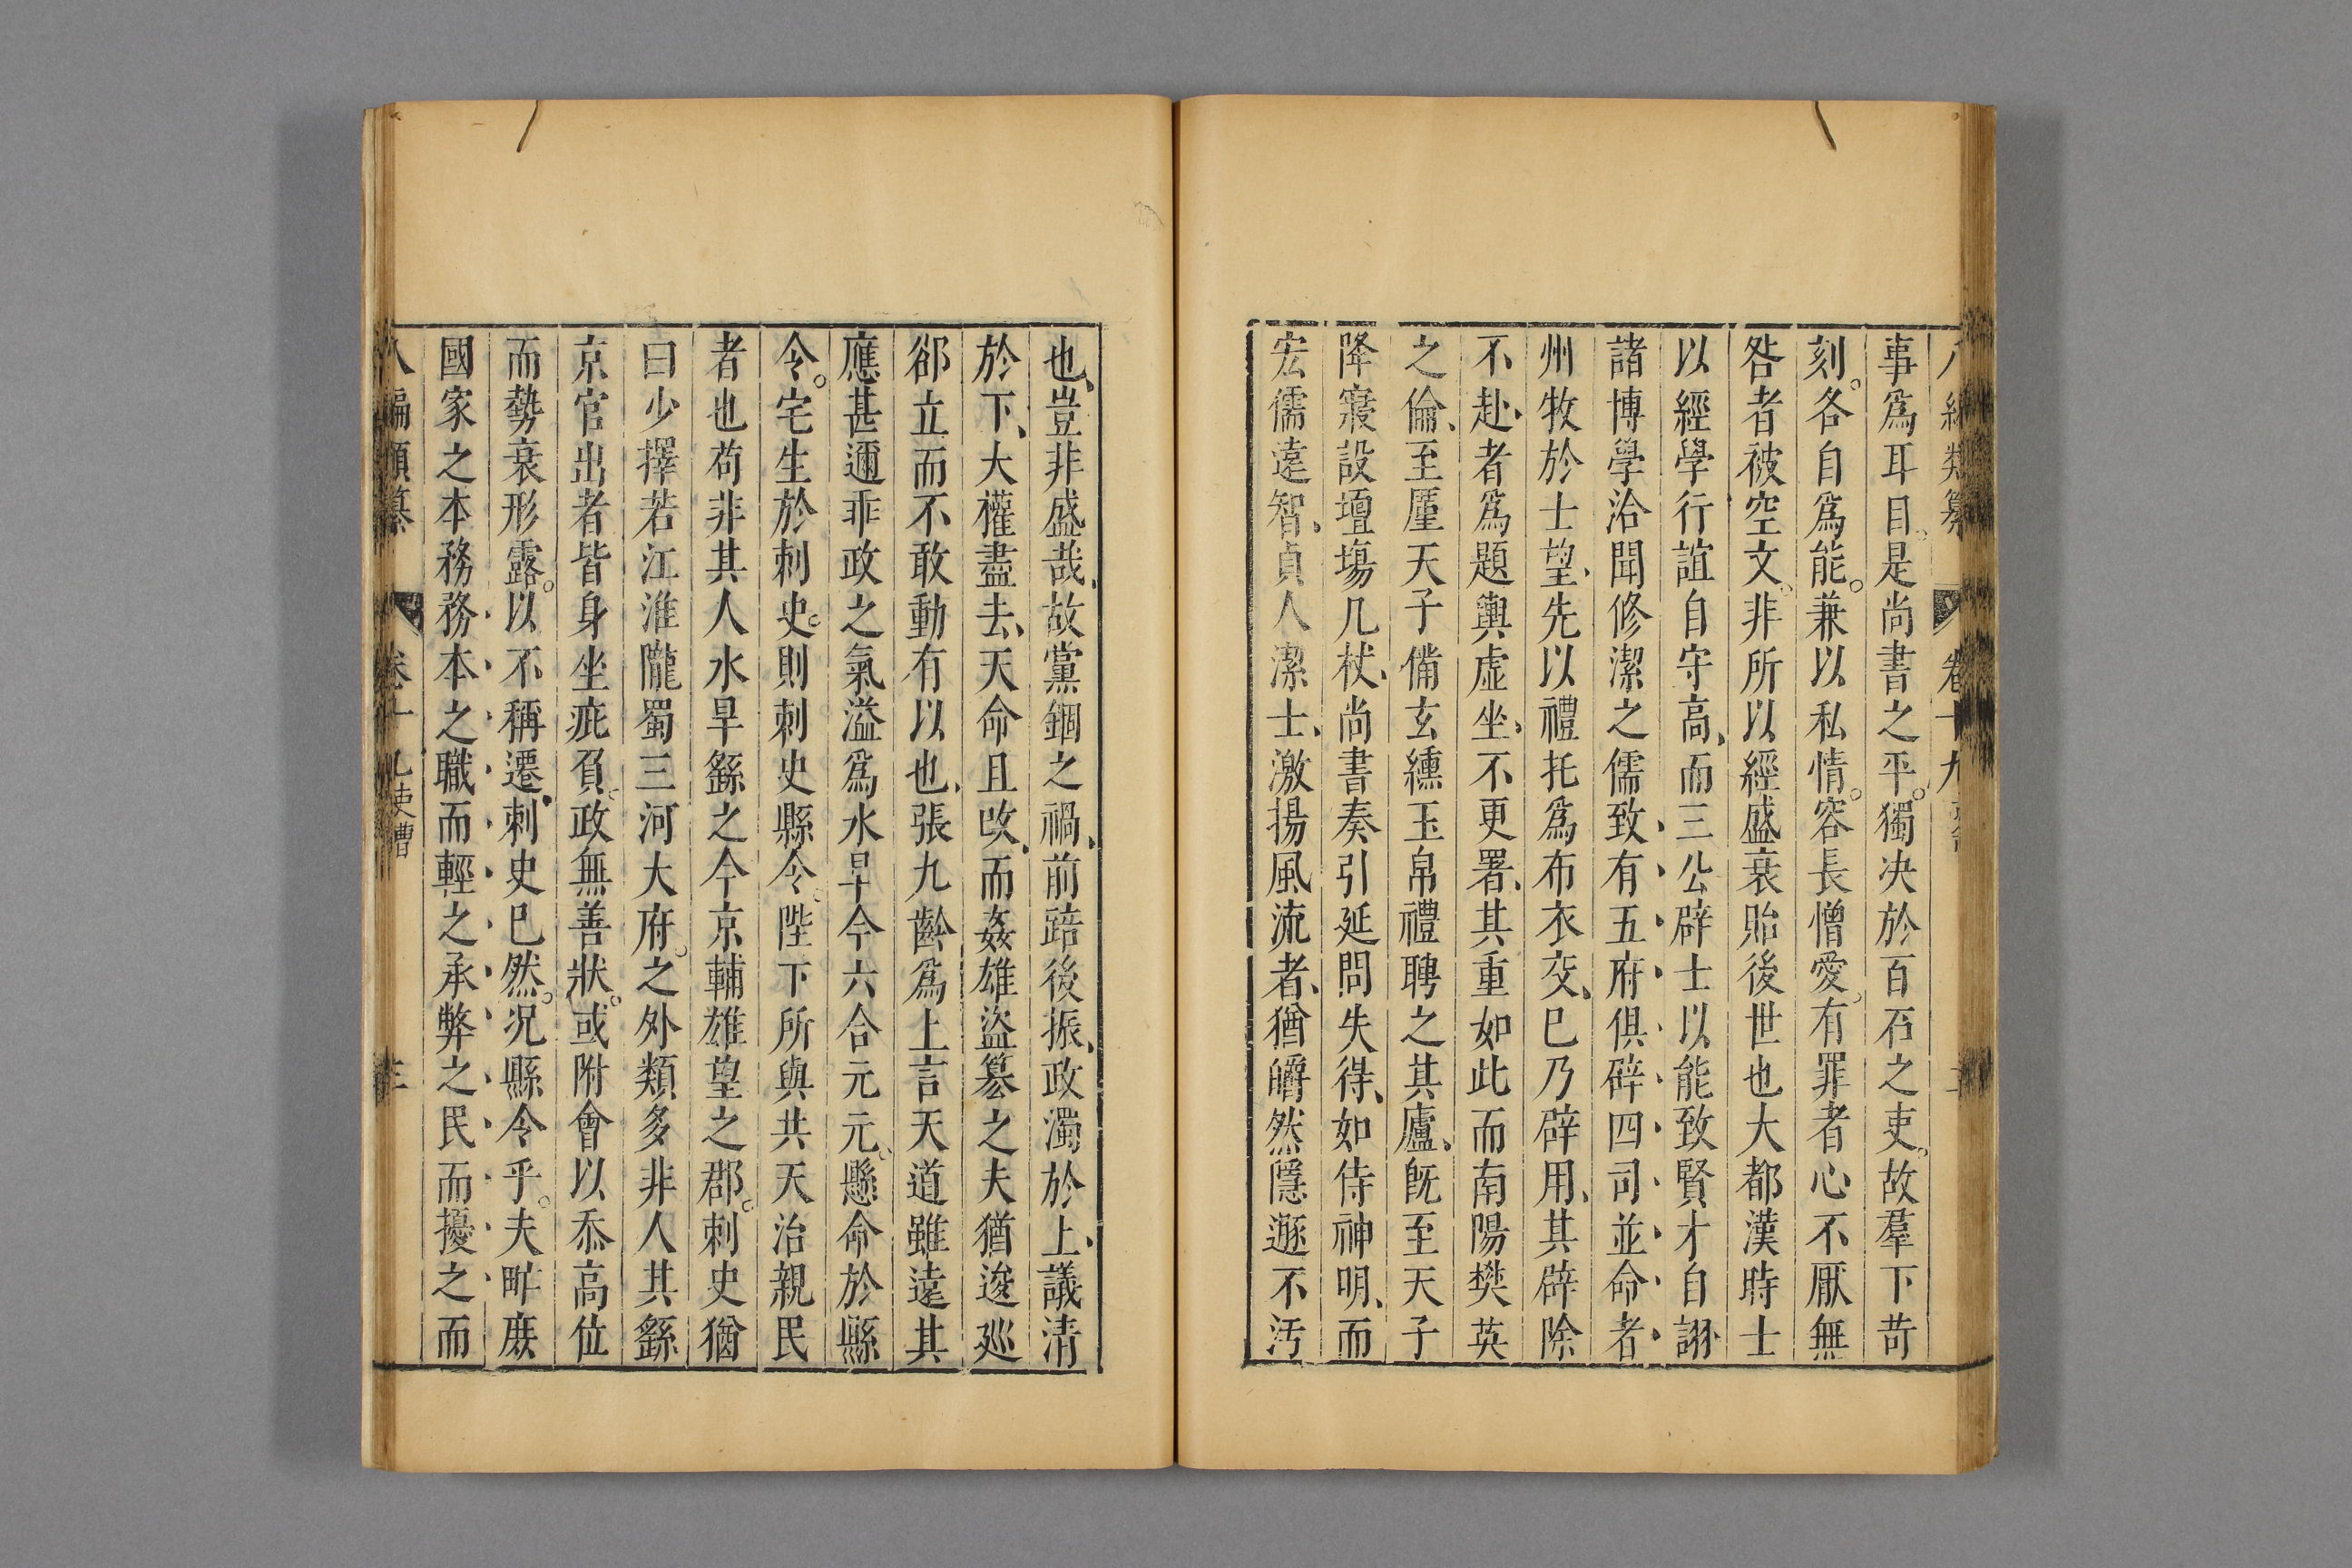 八編類纂 卷十九
事爲耳目是尚書之平獨决於百石之吏故羣下苛
刻各自爲能兼以私情容長憎愛有罪者心不厭無
咎者被空文非所以經盛衰貽後世也大都漢時士
以經學行誼自守高而三公辟士以能致賢才自詡
諸博學洽聞修潔之儒致有五府俱辟四司並命者
州牧於士望先以禮托爲布衣交巳乃辟用其辟除
不赴者爲題輿虛坐不更署其重如此而南陽樊英
之倫至厪天子備玄纁玉帛禮聘之其廬旣至天子
降寢設壇塲几杖尚書奏引延問失得如侍神明而
宏儒遠智貞人潔士激揚風流者猶皭然隱遯不汚
也豈非盛哉故黨錮之禍前踣後振政濁於上議淸
於下大權盡去天命且攺而姦雄盜篡之夫猶逡廵
郤立而不敢動有以也張九齡爲上言天道雖遠其
應甚邇乖政之氣溢爲水旱今六合元元懸命於縣
令宅生於刺史則刺史縣令陛下所與共天治親民
者也苟非其人水旱繇之今京輔雄望之郡刺史猶
曰少擇若江淮隴蜀三河大府之外類多非人其繇
京官出者皆身坐疵負政無善狀或附會以忝高位
而勢衰形露以不稱遷刺史巳然况縣令乎夫甿庶
國家之本務務本之職而輕之承弊之民而擾之而
八編類纂 卷十九吏曹 三